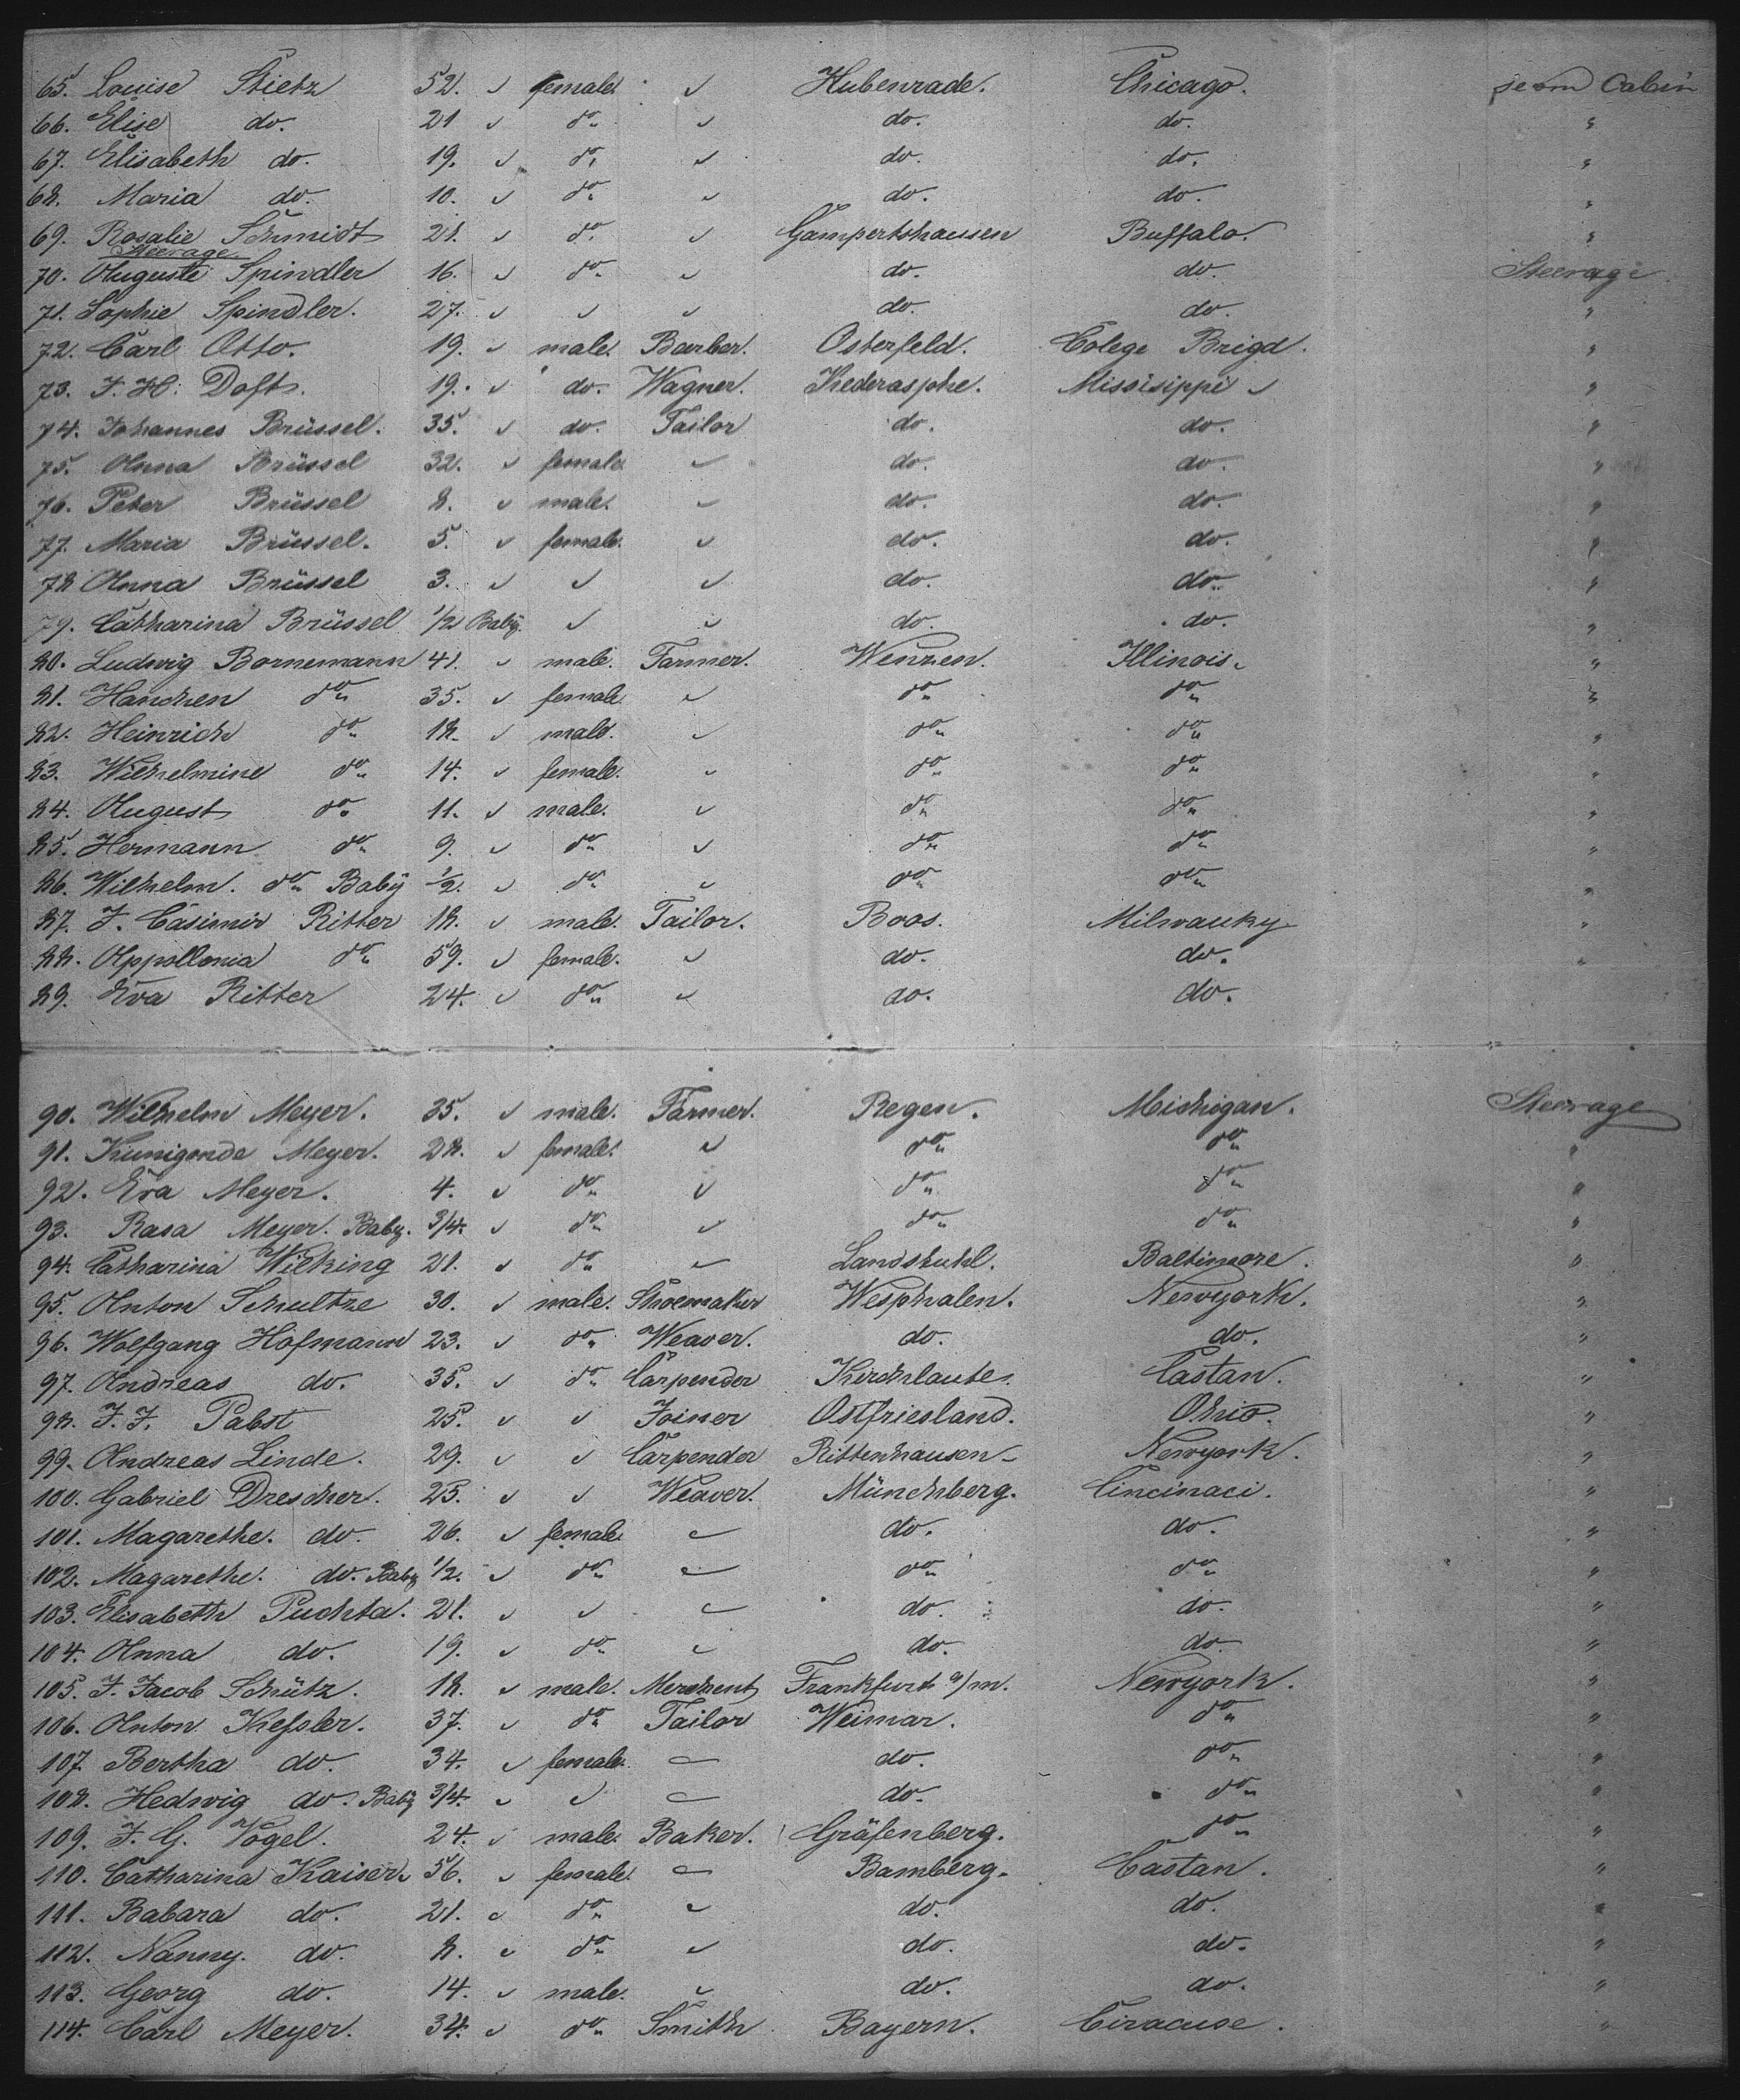 65. Louise Stietz 52. " female " Hubenrade. Chicago. secon Cabin
66. Elise do. 21 " do " do. do. "
67. Elisabeth do. 19. " do " do. do. "
68. Maria do. 10. " do " do. do. "
69. Rosalie Schmidt 21. " do " Gampertshausen Buffalo. "
Steerage
70. Auguste Spindler 16. " do " do. do. Steerage
71. Sophie Spindler. 27. " " " do. do. "
72. Carl Otto. 19. " male. Barber. Osterfeld. Colege Brigd. "
73. J. H. Daft. 19. " do. Wagner. Kederasphe. Missisippi " "
74. Johannes Brüssel. 35. " do. Tailor do. do. "
75. Anna Brüssel 32. " female " do. do. "
76. Peter Brüssel 8. " male. " do. do. "
77. Maria Brüssel. 5. " female. " do. do. "
78 Anna Brüssel 3. " " " do. do. "
79. Catharina Brüssel 1/2 Baby. " " do. do. "
80. Ludwig Bornemann 41. " male. Farmer. Wenzen. Illinois. "
81. Hanchen do 35. " female " do do "
82. Heinrich do 18. " male. " do do "
83. Wilhelmine do 14. " female. " do do "
84. August do 11. " male. " do do "
85. Hermann do 9. " do " do do "
86. Wilhelm. do Baby 1/2. " do " do do "
87. J. Casimir Ritter 18. " male. Tailor. Boos. Milwauky "
88. Appollonia do 59. " female. " do. do. "
89. Eva Ritter 24. " do " do. do.
90. Wilhelm Meyer. 35. " male. Farmer. Regen. Michigan. Steerage
91. Kunigonda Meyer. 28. " female. " do do "
92. Eva Meyer. 4. " do " do do "
93. Rasa Meyer. Baby. 3/4. " do " do do "
94. Catharina Wilking 21. " do " Landstuhl. Baltimore. "
95. Anton Schultze 30. " male. Shoemaker Wesphalen. Newyork. "
96. Wolfgang Hofmann 23. " do Weaver. do. do. "
97. Andreas do. 35. " do Carpender Kirchlauter. Castan. "
98. J. J. Pabst 25. " " Joiner Ostfriesland. Ohio. "
99. Andreas Linde. 29. " " Carpender Rittenhausen Newyork. "
100. Gabriel Drescher. 25. " " Weaver. Münchberg. Cincinaci. "
101. Magarethe. do. 26. " female " do. do. "
102. Magarethe. do. Baby 1/2. " do " do do "
103. Elisabeth Puchta. 21. " " " do. do. "
104. Anna do. 19. " do " do. do. "
105. J. Jacob Schütz. 18. " male. Merchent Frankfurt a/m. Newyork. "
106. Anton Keßler. 37. " do Tailor Weimar. do "
107. Bertha do. 34. " female. " do. do "
108. Hedwig do. Baby 3/4. " " " do. do "
109. J. G. Vogel. 24. " male. Baker. Gräfenberg. do "
110. Catharina Kaiser. 56. " female. " Bamberg. Castan. "
111. Babara do. 21. " do " do. do. "
112. Nanny. do. 8. " do " do. do. "
113. Georg do. 14. " male. " do. do. "
114. Carl Meyer. 34. " do Smith Bayern. Ciracuse. "